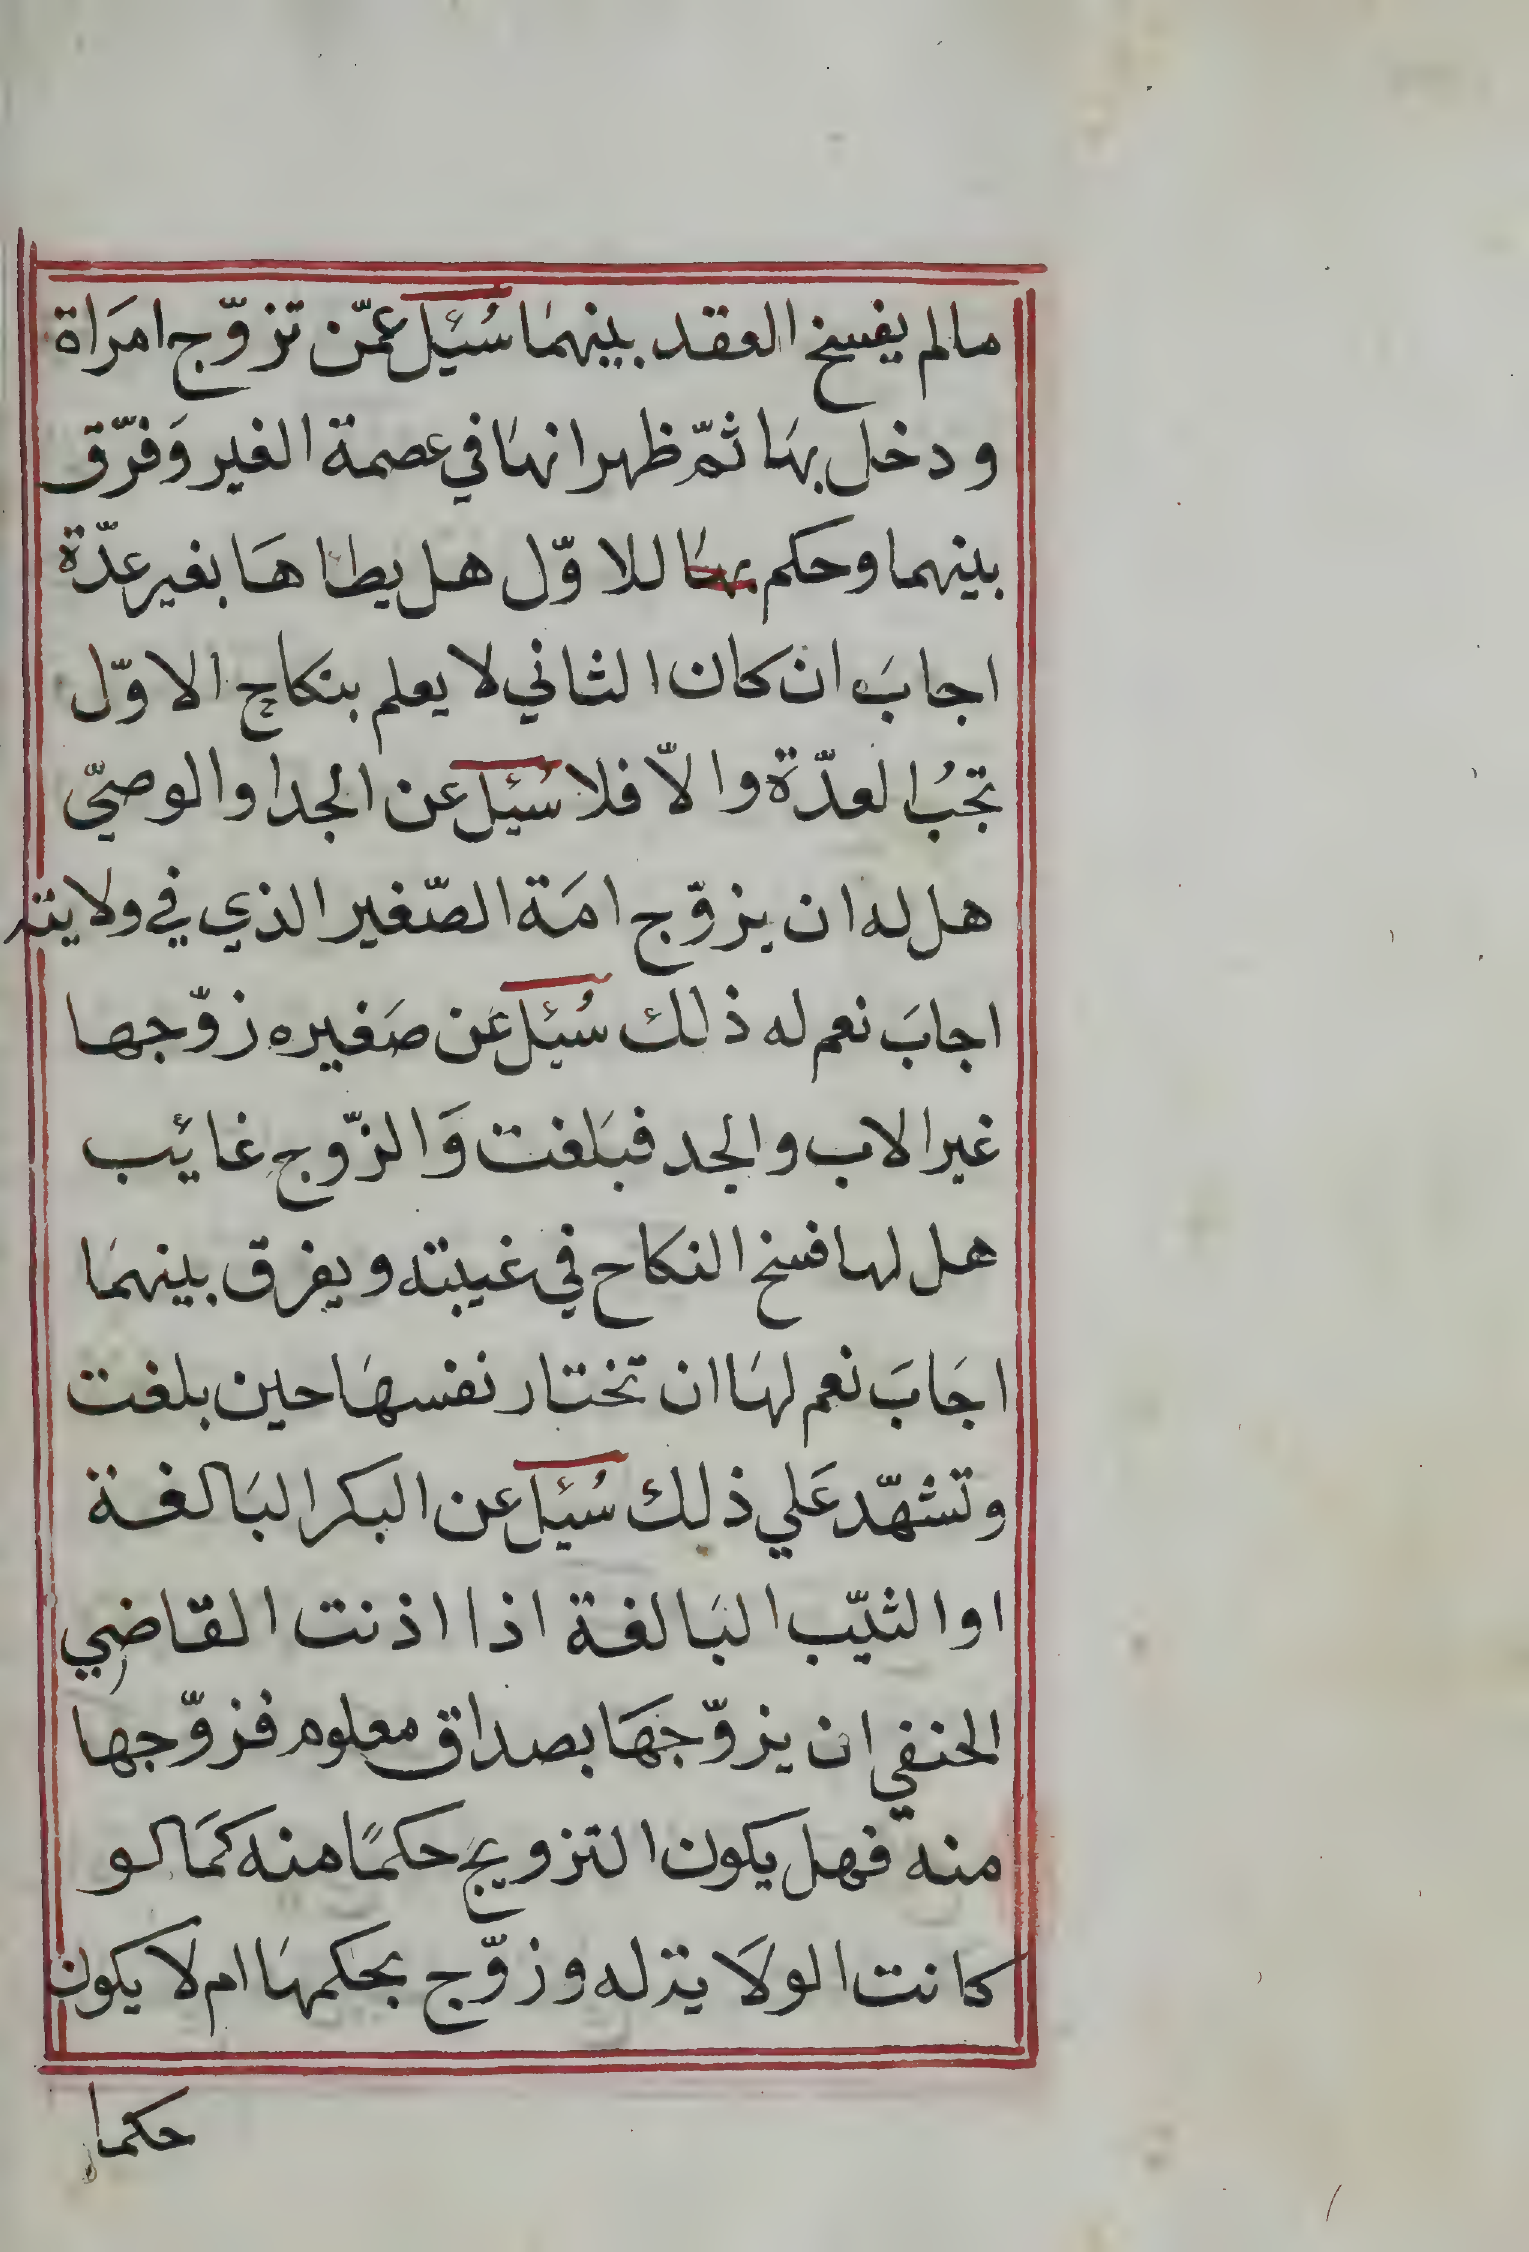 مالم يفسخ العقد بينهمَا سُئيل عمّن تزوّج امرَاة
ودخل بهَا ثمّ ظهر انهَا في عصمة الغير وَفرّق
بينهما وحكم بهَا للاوّل هل يطاها بغير عدّة
اجابَ ان كان الثاني لا يعلم بنكاح الاوّل
تجبُ العدّة والاّ فلا سُئيل عن الجد او الوصيّ
هل له ان يزوّج امَة الصّغير الذي في ولايته
اجابَ نعم له ذلك سُئيل عَن صَغيره زوّجها
غير الاب والجد فبَلغت وَالزّوج غائب
هل لها فسخ النكاح في غيبته ويفرق بينهمَا
اجَابَ نعم لهَا ان تختار نفسهَا حين بلغت
وتشهّد عَلي ذلك سُئيل عن البكر البَالغة
او الثيّب البَالغة اذا اذنت القاضي
الحنفي ان يزوّجهَا بصداق معلوم فزوّجها
منه فهل يكون التزويج حكمًا منه كمَا لو
كانت الولَاية له وزوّج بحكمهَا ام لا يكون
حكما